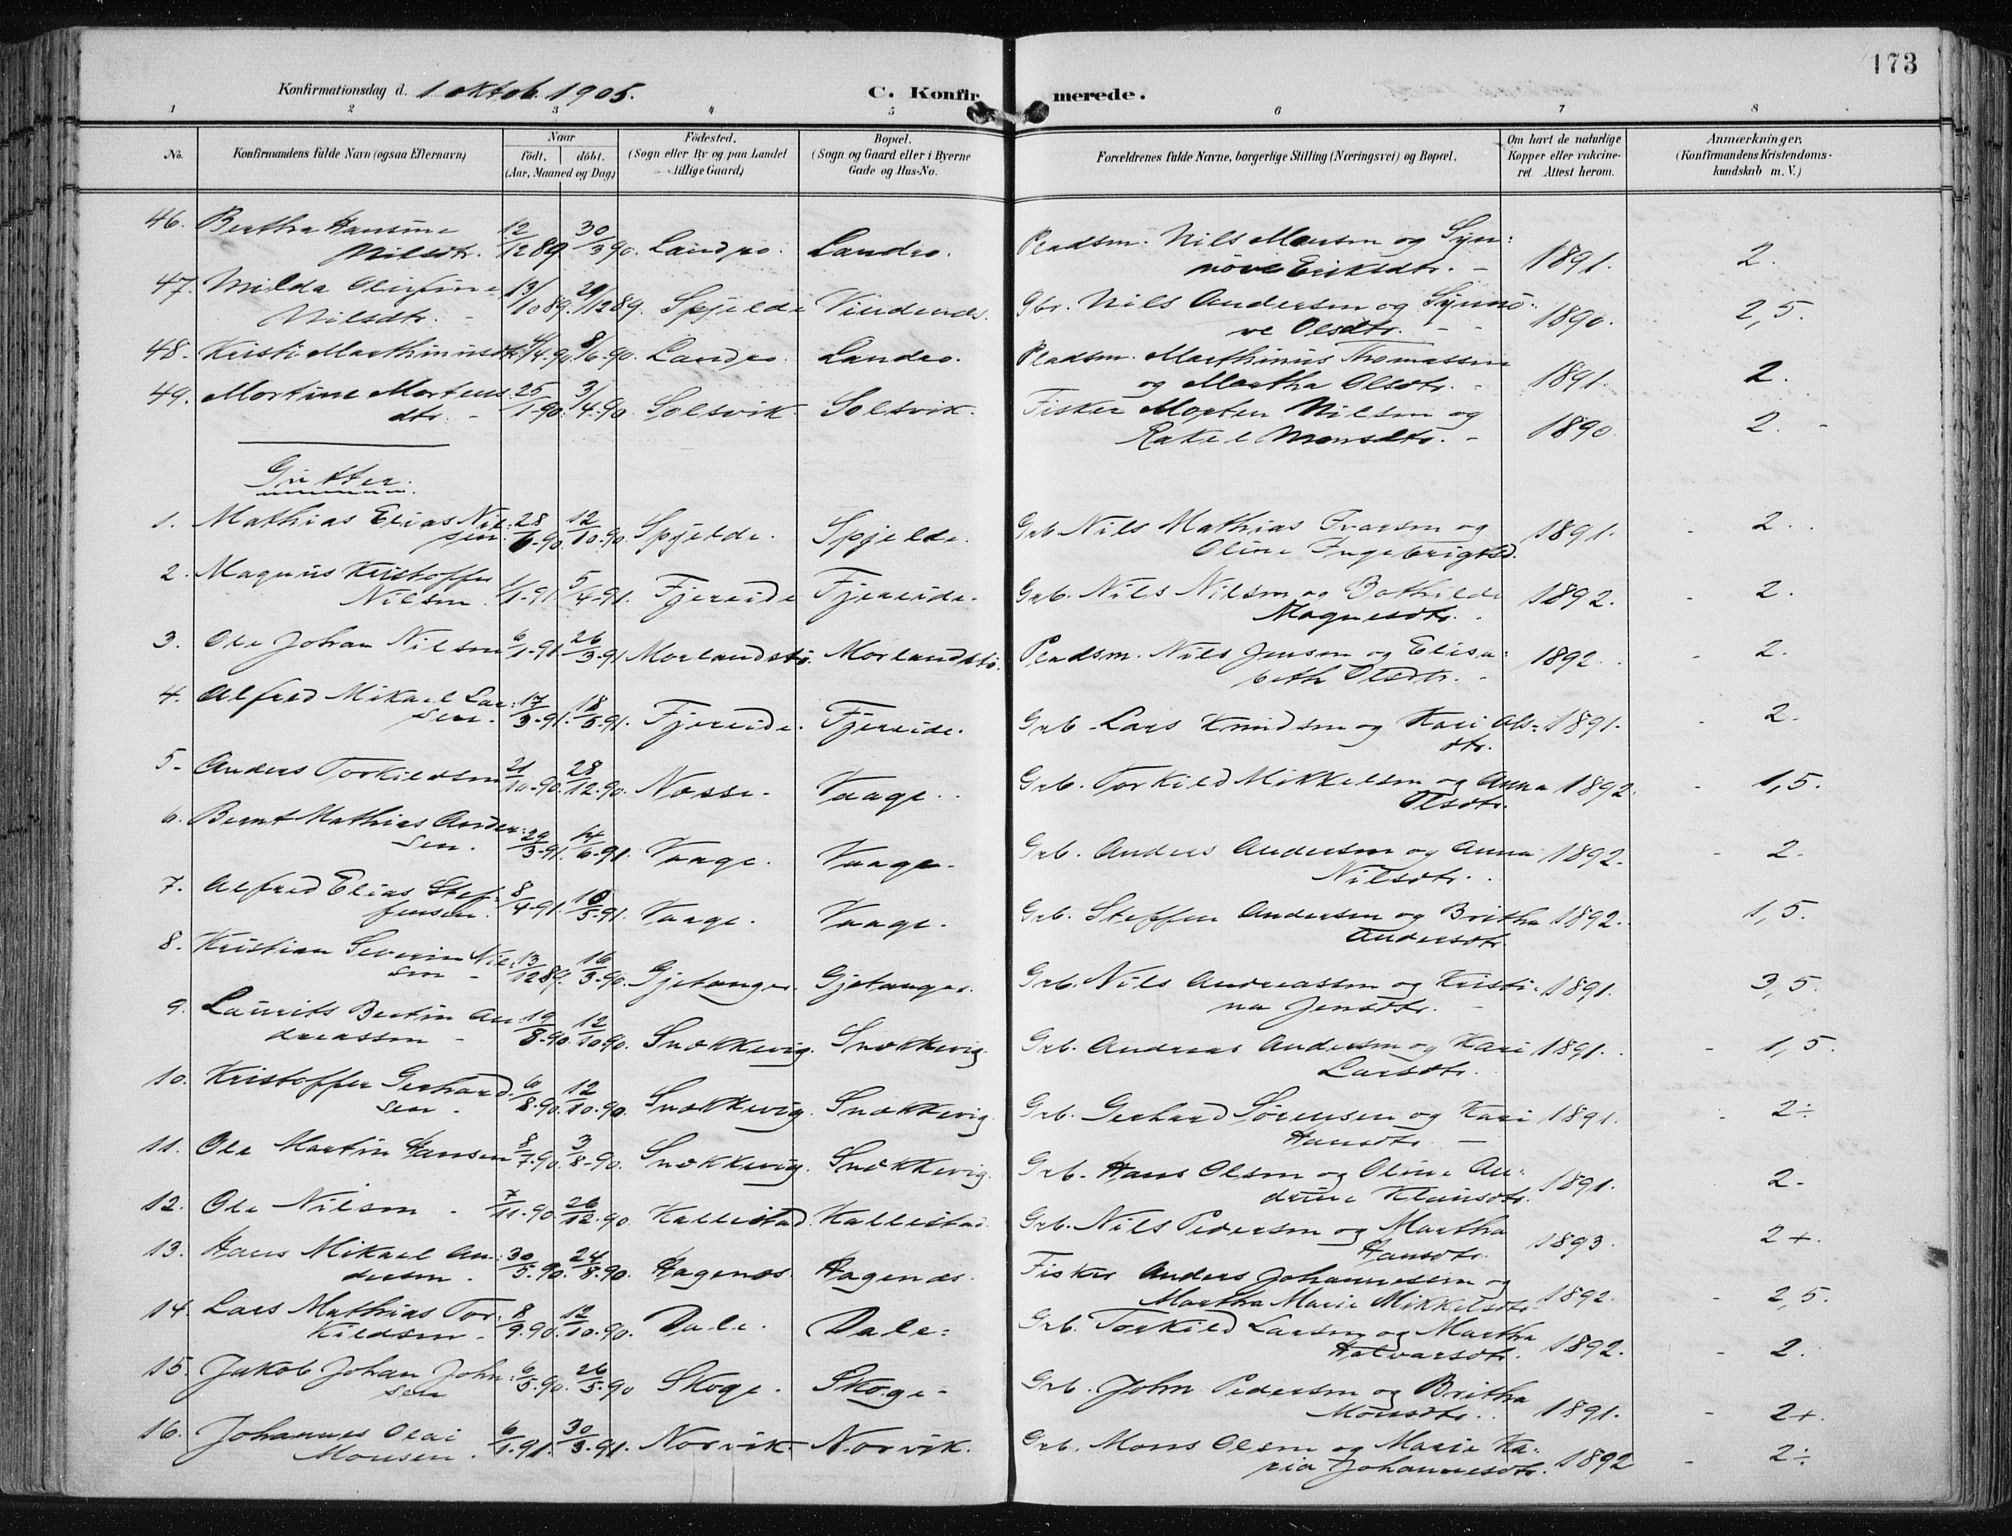 173
Konfirmationsdag d. 1 oktob. 1905. C. Konfirmerede.
1 2 3 4 5 6 7 8
No. Konfirmandens fulde Navn (ogsaa Efternavn) Naar födt, döbt. (Aar, Maaned og Dag) Födested. (Sogn eller By og paa Landet tillige Gaard) Bopæl. (Sogn og Gaard eller i Byerne Gade og Hus-No. Forældrenes fulde Navne, borgerlige Stilling (Næringsvei) og Bopæl. Om havt de naturlige Kopper eller vakcineret. Attest herom. Anmærkninger. (Konfirmandens Kristendomskundskab m. V.)
46. Bertha Hansine Nilsdtr. 12/12 89 30/3 90. Landro. Landro. Pladsm. Nils Monsen og Synnöve Eriksdtr. - 1891. 2.
47. Milda Olufine Nilsdtr. - 13/10 89. 29/12 89. Spjelde Vindenes. Gbr. Nils Andersen og Synnöve Olsdtr. - - 1890. 2,5.
48. Kristi Marthinusdtr. 4/4.90 8/6.90. Landro. Landro. Pladsm. Marthinus Thomassen og Martha Olsdtr. - 1891. 2.
49. Martine Mortensdtr. - 25/1-90. 3/4-90. Solsvik. Solsvik. Fisker Morten Nilsen og Rakel Monsdtr. - 1890. 2. -
Gutter.
1. Mathias Elias Nilsen. 28/6-90. 12/10-90. Spjelde. Spjelde. Grb. Nils Mathias Ivarsen og Oline Ingebrigtsd. 1891. - 2.
2. Magnus Kristoffer Nilsen. 1/1-91. 5/4-91. Fjereide Fjereide. Grb. Nils Nilsen og Bothilde Magnesdtr. 1892. - 2.
3. Ole Johan Nilsen 6/1-91. 26/3-91 Morlandstö. Morlandstö. Pladsm. Nils Jensen og Elisabeth Olsdtr. - 1892. - 2.
4. Alfred Mikael Larsen. 17/3-91. 18/5-91. Fjereide. Fjereide. Grb. Lars Knudsen og Kari Olsdtr. 1891. - 2.
5. Anders Torkildsen 21/10-90. 28/12.90. Nosse. Vaage. Grb. Torkild Mikkelsen og Anna Olsdtr. 1892. - 1,5.
6. Bernt Mathias Andersen. 29/3-91. 14/6-91. Vaage. Vaage. Grb. Anders Andersen og Anna Nilsdtr. 1892. - 2.
7. Alfred Elias Steffensen. 8/4-91. 10/5-91. Vaage. Vaage. Grb. Steffen Andersen og Britha Andersdtr. 1892. 1,5.
8. Kristian Severin Nilsen - 13/12 89. 16/3-90. Gjetanger Gjetanger. Grb. Nils Andreassen og Kristina Jensdtr. - 1891. 3,5.
9. Laurits Bertin Andreassen - 19/8-90. 12/10.90. Snekkevig. Snekkevig. Grb. Andreas Andersen og Kari Larsdtr. 1891. - 1,5.
10. Kristoffer Gerhardsen. 6/8.90. 12/10.90. Snekkevig. Snekkevig. Grb. Gerhard Sörensen og Kari Hansdtr. - 1891. - 2÷
11. Ole Martin Hansen 8/7.90. 3/8-90. Snekkevig. Snekkevig. Grb. Hans Olsen og Oline Andrine Klausdtr. 1891. - 2.
12. Ole Nilsen - 7/11-90. 26/12.90. Kallestad. Kallestad. Grb. Nils Pedersen og Martha Hansdtr. 1893. - 2+.
13. Hans Mikael Andersen. 30/5.90. 24/8.90. Hagenes. Hagenes. Fisker Anders Johannessen og Martha Marie Mikkelsdtr. 1892. - 2,5.
14. Lars Mathias Torkildsen - 8/9.90. 12/10.90. Dale. Dale. Grb. Torkild Larsen og Martha Halvarsdtr. 1892. - 2.
15. Jakob Johan Johnsen 6/5.90. 26/5.90 Skoge. Skoge. Grb. John Pedersen og Britha Monsdtr. 1891. - 2+.
16. Johannes Olai Monsen. 6/1.91. 30/3.91. Norvik. Norvik. Grb. Mons Olsen og Marie Karia Johannesdtr. 1892 - 2÷